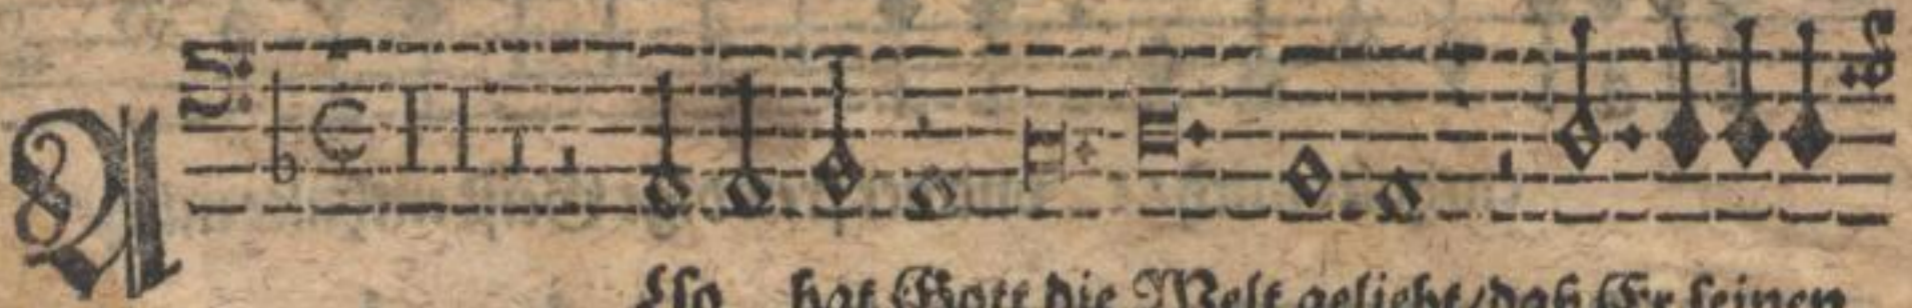 Also hat Gott die Welt geliebt/daß Er seinen